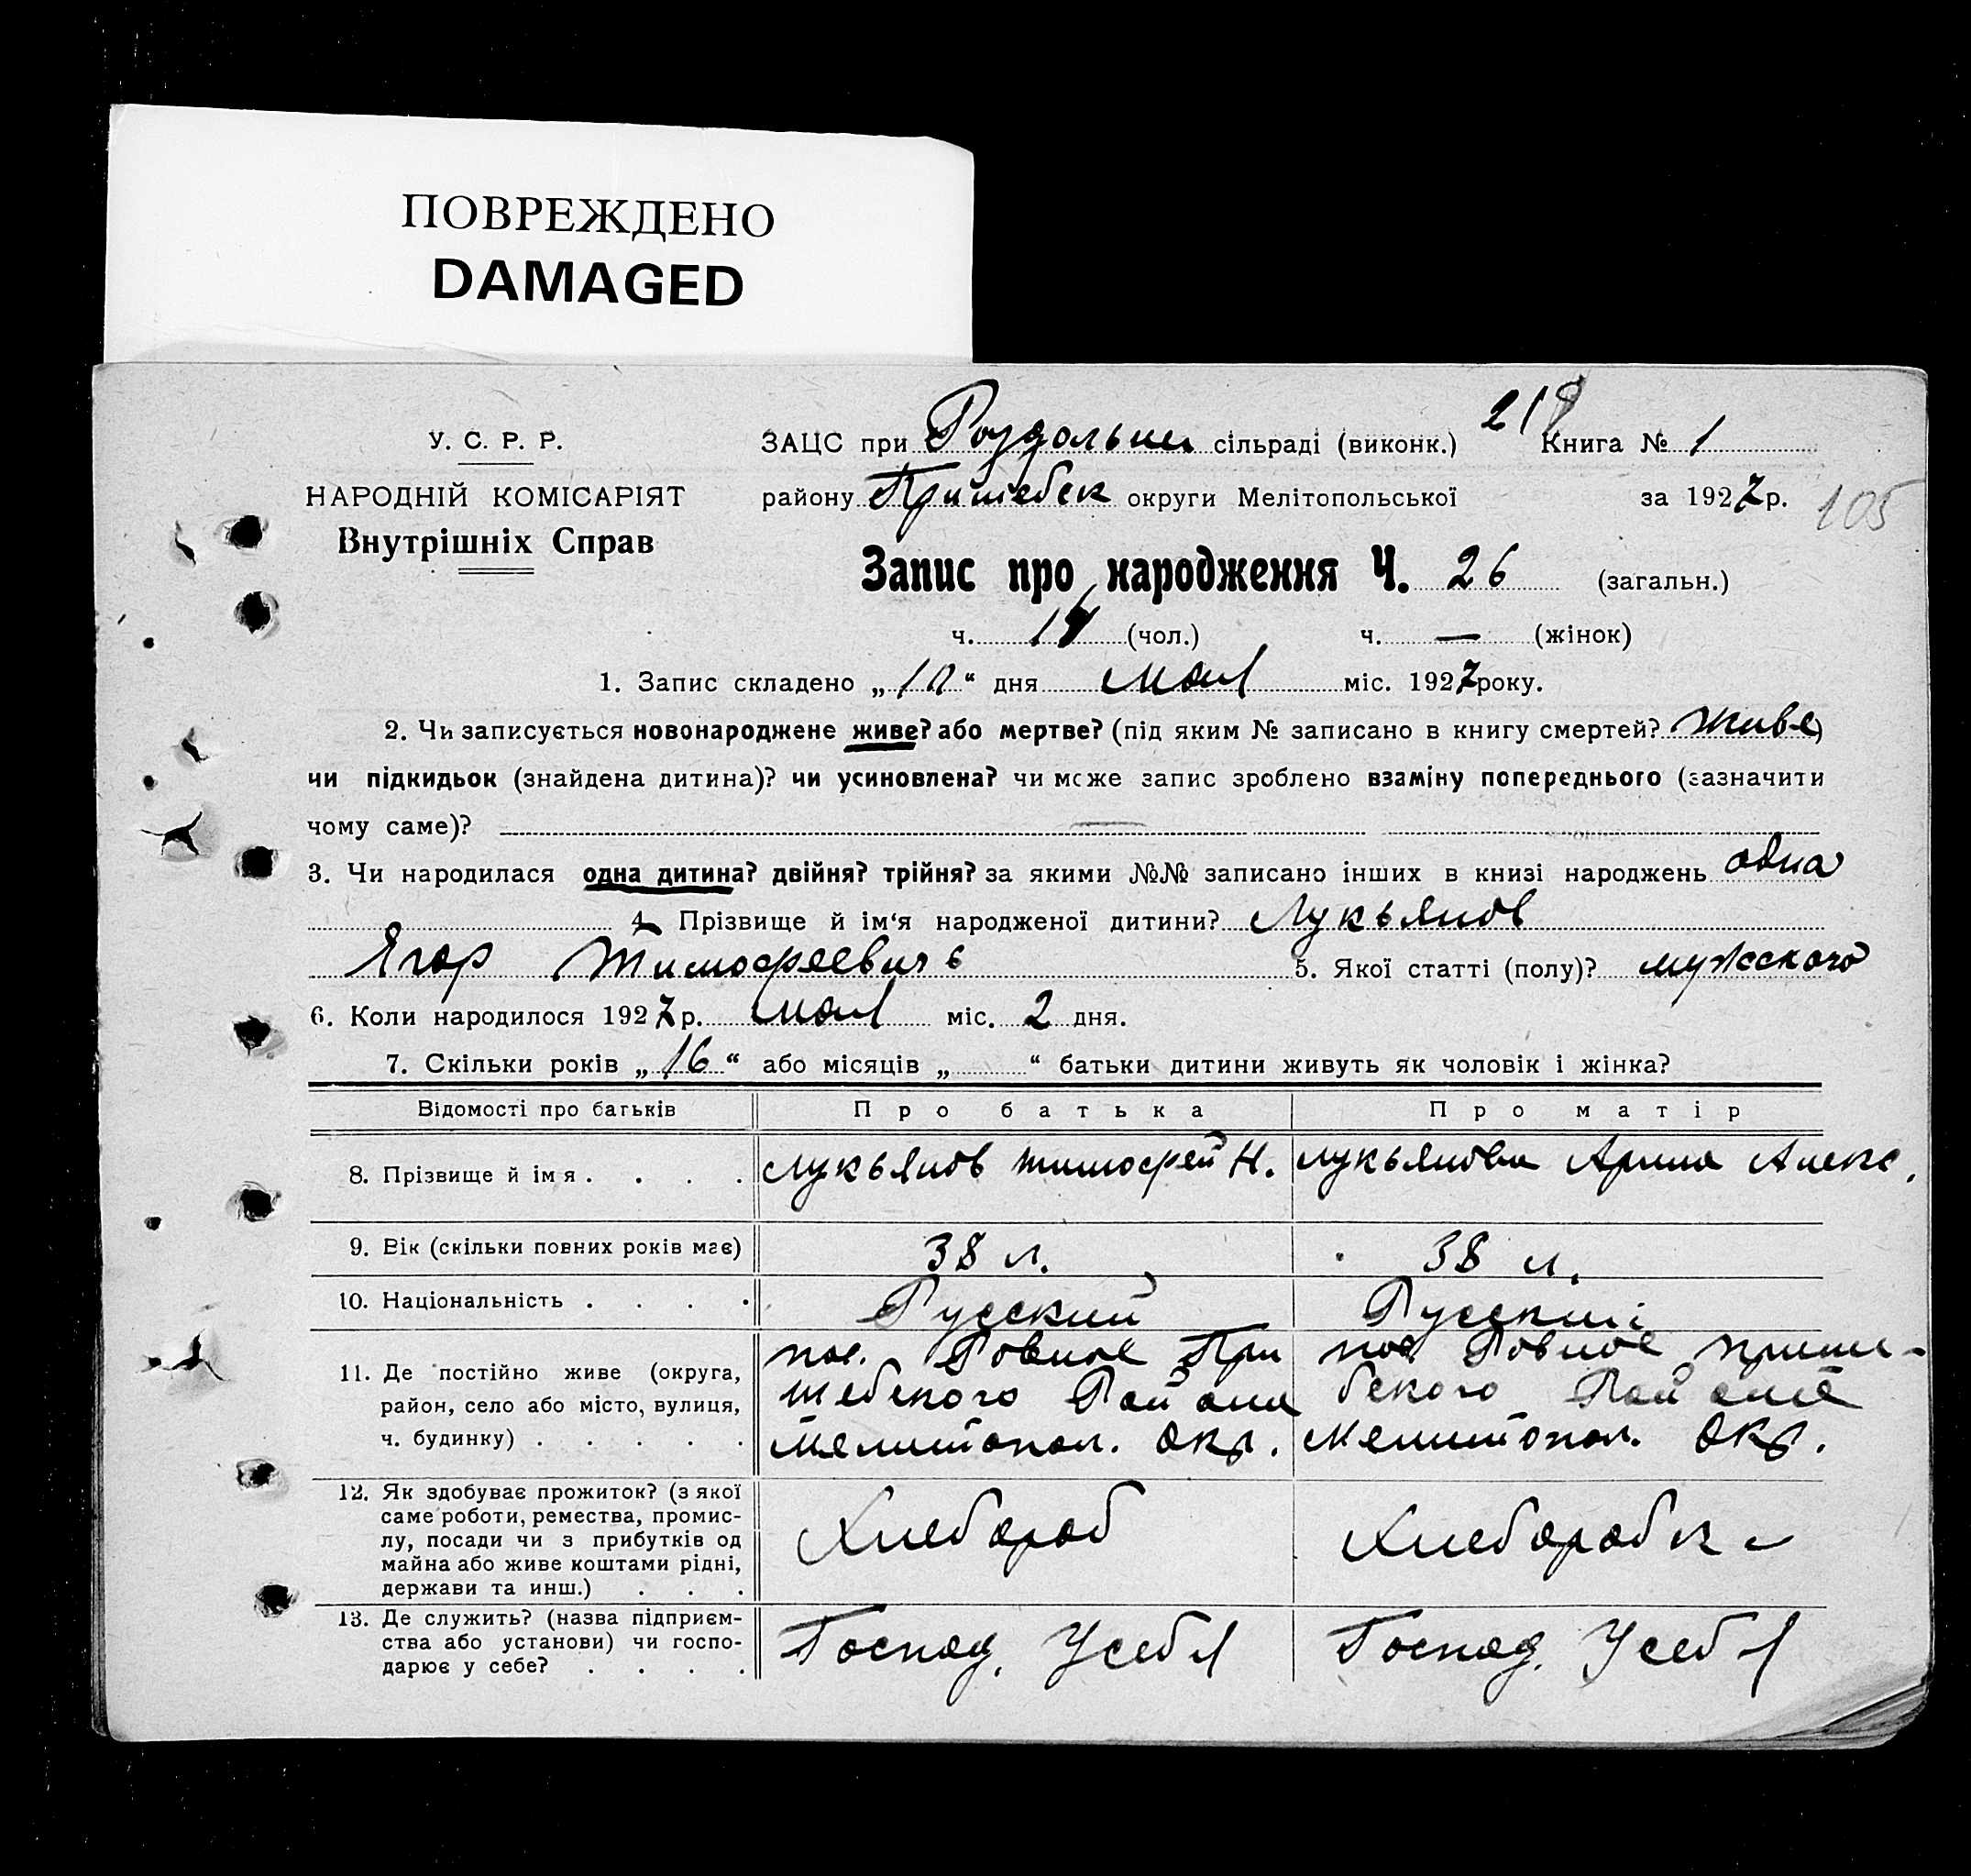 ПОВРЕЖДЕНО
DAMAGED
У. С. Р. Р.
НАРОДНІЙ КОМІСАРІЯТ
Внутрішніх Справ
218
ЗАЦС при Роздольни сільраді (виконк.) Книга № 1
району Пришебск округи Мелітопольської за 1927 р.
105
Запис про народження Ч. 26 (загальн.)
ч. 14 (чол.) ч. — (жінок)
1. Запис складено „10“ дня мая міс. 1927 року.
2. Чи записується новонароджене живе? або мертве? (під яким № записано в книгу смертей? живе)
чи підкидьок (знайдена дитина)? чи усиновлена? чи може запис зроблено взаміну попереднього (зазначити
чому саме)?
3. Чи народилася одна дитина? двійня? трійня? за якими №№ записано інших в книзі народжень одна
4. Прізвище й ім‘я народженої дитини? Лукьянов
Ягор Тимофеевичь 5. Якої статті (полу)? мужского
6. Коли народилося 1927 р. мая міс. 2 дня.
7. Скільки років „16“ або місяців „ “ батьки дитини живуть як чоловік і жінка?
Відомості про батьків Про батька Про матір
8. Прізвище й імя . . . . Лукьянов Тимофей Н. Лукьянова Арина Алекс.
9. Вік (скільки повних років має) 38 л. 38 л.
10. Національність . . . . Русский Русский
11. Де постійно живе (округа, район, село або місто, вулиця, ч. будинку) . . . . .
пос. Ровное При
шебского Района
Мелитопол. Окр.
пос. Ровное Приши-
бского Района
Мелитопол. Окр.
12. Як здобуває прожиток? (з якої
саме роботи, ремества, промис-
лу, посади чи з прибутків од
майна або живе коштами рідні,
держави та инш.) . . .
Хлебороб Хлеборобка
13. Де служить? (назва підприєм-
ства або установи) чи госпо-
дарює у себе? . . . .
Господ. Усебя Господ. Усебя